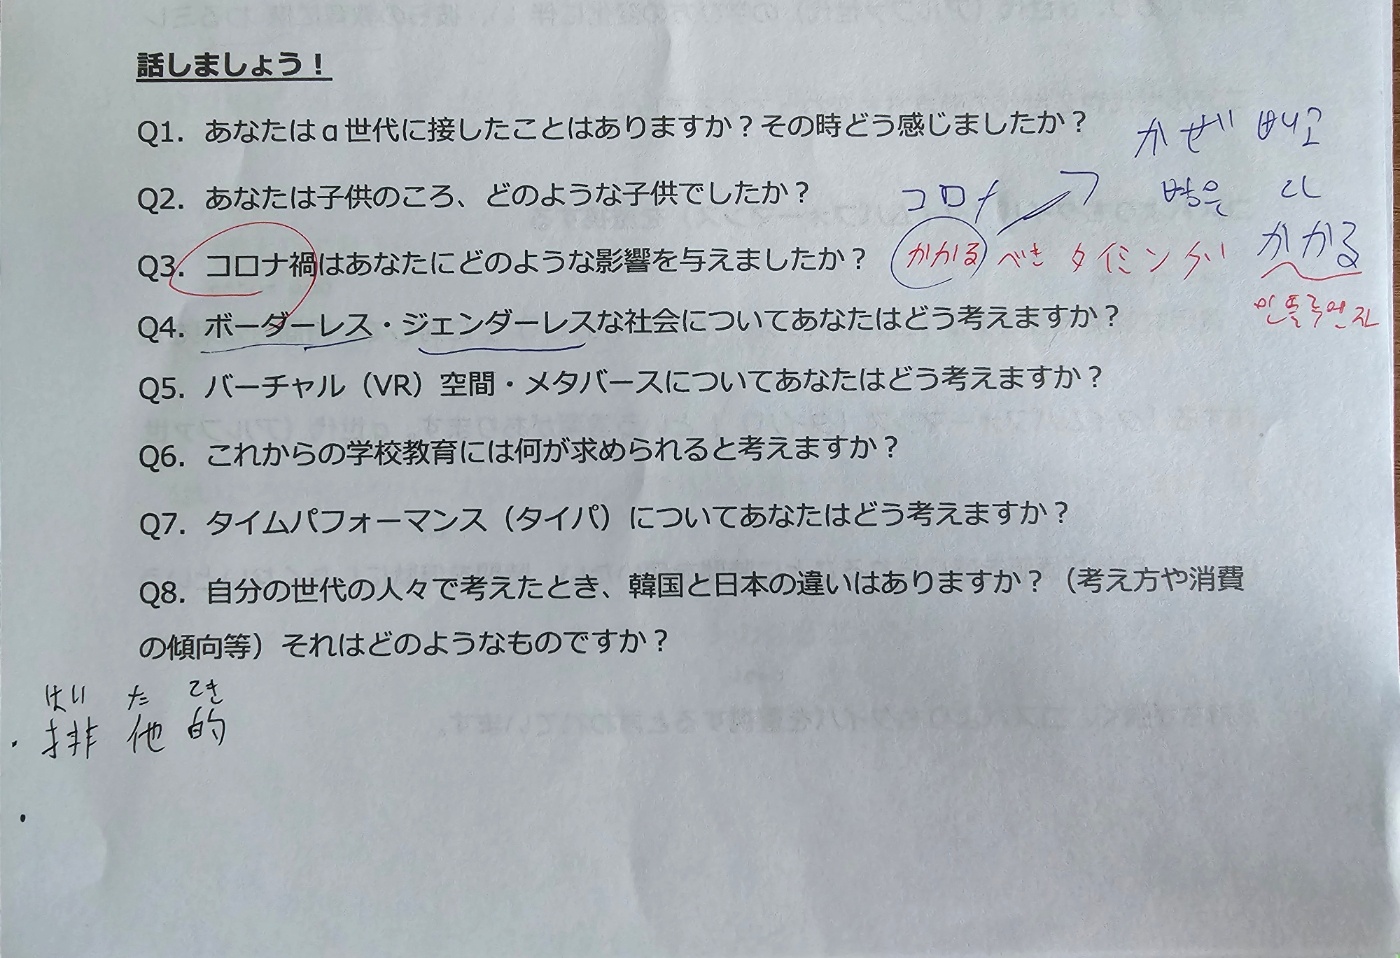 話しましょう！
Q1. あなたはα世代に接したことはありますか？その時どう感じましたか？
かぜ 빼고
Q2. あなたは子供のころ、どのような子供でしたか？
コロナ
병은 다
Q3. コロナ禍はあなたにどのような影響を与えましたか？
かかる べき タイミング
かかる
인플루엔자
Q4. ボーダーレス・ジェンダーレスな社会についてあなたはどう考えますか？
Q5. バーチャル（VR）空間・メタバースについてあなたはどう考えますか？
Q6. これからの学校教育には何が求められると考えますか？
Q7. タイムパフォーマンス（タイパ）についてあなたはどう考えますか？
Q8. 自分の世代の人々で考えたとき、韓国と日本の違いはありますか？（考え方や消費
の傾向等）それはどのようなものですか？
はい た てき
・排他的